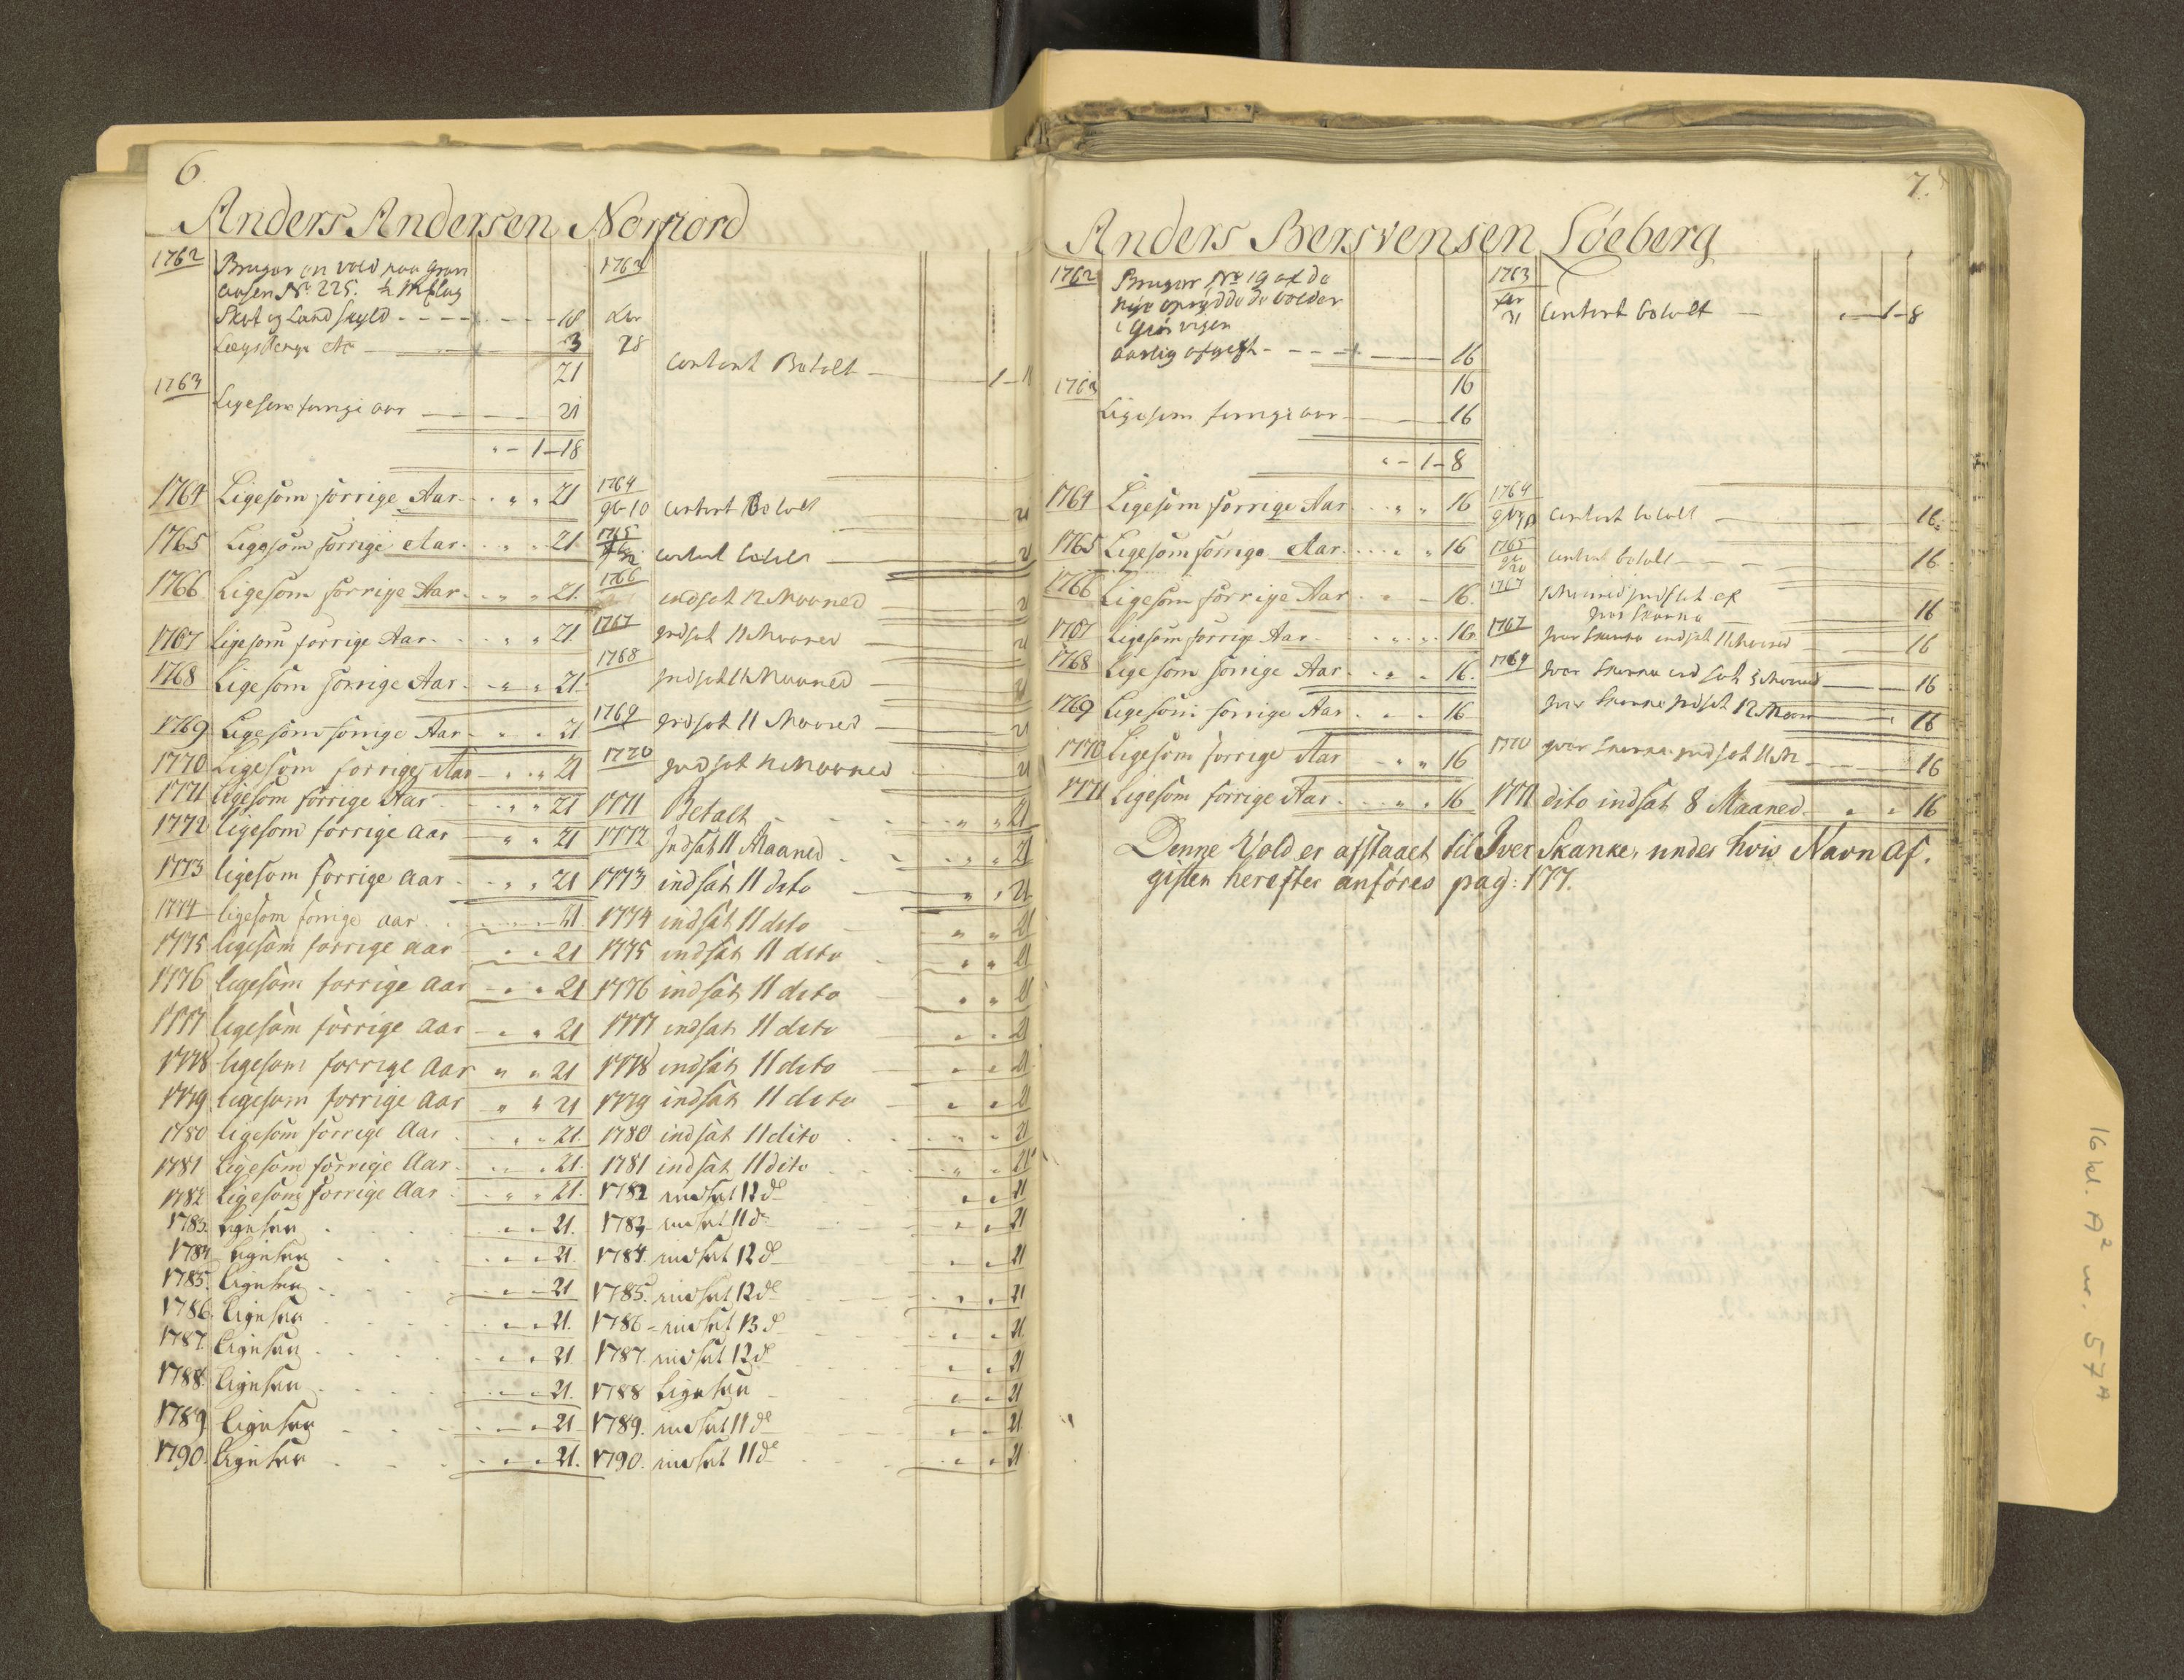 6.
Anders Andersen Norfiord
1762 Bruger en vold paa Gran
aasen No 225.
Skat og Landskyld - - - - 18
Lægspenge etc - 3
21
1763
Ligesom forrige aar - - - 21
" - 1 - 18
1764 Ligesom forrige Aar . . " " 21
1765 Ligesom forrige Aar . . " " 21.
1766 Ligesom forrige Aar . . " " 21.
1767 Ligesom forrige Aar . . " " 21.
1768 Ligesom forrige Aar . - " " 21.
1769 Ligesom forrige Aar - " " 21
1770 Ligesom forrige Aar - " " 21
1771 ligesom forrige Aar - " " 21
1772 ligesom forrige aar " " 21
1773 ligesom forrige aar - " " 21
1774 ligesom forrige aar . . 21.
1775 ligesom forrige aar - " " 21
1776 ligesom forrige aar - " " 21
1777 ligesom forrige aar - " " 21
1778 ligesom forrige aar " " 21
1779 ligesom forrige aar - " " 21
1780 ligesom forrige Aar . . " " 21.
1781 Ligesom forrige Aar . . " " 21.
1782 Ligesom forrige Aar . . " " 21.
1783. ligesaa . . " " 21.
1784 ligesaa . . " " 21.
1785. ligesaa . . " " 21
1786. ligesaa . . " " 21.
1787. ligesaa . . " " 21
1788. ligesaa . . " " 21.
1789 ligesaa . . " " 21
1790. ligesaa . . " " 21.
1763
28 Contant Betalt - 1 -
1764
10 Contant Betalt - 21
1765
contant betalt - 21
1766
indsat 12 Maaned - 21
1767 indsat 11 Maaned - 21
1768
indsat 11 Maaned - 21
1769 indsat 11 Maaned - 21
1770 indsat 11 Maaned . 21
1771 Betalt - . . " " 21
1772 Indsat 11 Maaned . . " " 21
1773 indsat 11 dito - " " 21
1774 indsat 11 dito - " " 21
1775 indsat 11 dito - " " 21
1776 indsat 11 dito - " " 21
1777 indsat 11 dito " " 21
1778 indsat 11 dito - " " 21
1779 indsat 11 dito - " " 21
1780 indsat 11 dito . . " " 21
1781 indsat 11 dito . . " " 21
1782 indsat 12 do " " 21
1783 indsat 11 do " " 21
1784. indsat 12 do " " 21
1785. indsat 12 do " " 21
1786 - indsat 13 do " " 21.
1787. indsat 12 do " " 21
1788 ligesaa - " " 21
1789. indsat 11 do " " 21.
1790. indsat 11 do " " 21
7.
Anders Bersvensen Söeberg
1762 Bruger No 19 af de
nye opryddede volder
i
aarlig afgift - - - 16
16
1763
Ligesom forrige aar - - 16
" - 1 - 8
1764 Ligesom forrige Aar . . " " 16
1765 Ligesom forrige Aar . . . " " 16
1766 Ligesom forrige Aar . " - 16.
1767 Ligesom forrige Aar . . " " 16.
1768 Ligesom forrige Aar . . " " 16.
1769 Ligesom forrige Aar . " " 16
1770 Ligesom forrige Aar - " " 16
1771 Ligesom forrige Aar . . " " 16
1763
31 Contant betalt - " - 1 - 8
1764
Contant betalt - 16.
1765
20 Contant betalt - - - 16.
1767 indsat af
Iver Skanke - 16
1767 Iver Skanke indsat 11 Maaned - 16
1769 Iver Skanke indsat Maaned - 16
Iver Skanke indsat 12 Maan - 16
1770 Iver Skanke indsat 11 M - - - 16
1771 dito indsat 8 Maaned . " " 16
Denne Vold er afstaaet til Iver Skanke, under hvis Navn Af-
giften herefter anföres pag: 177.
16 kd. A2 nr. 57A